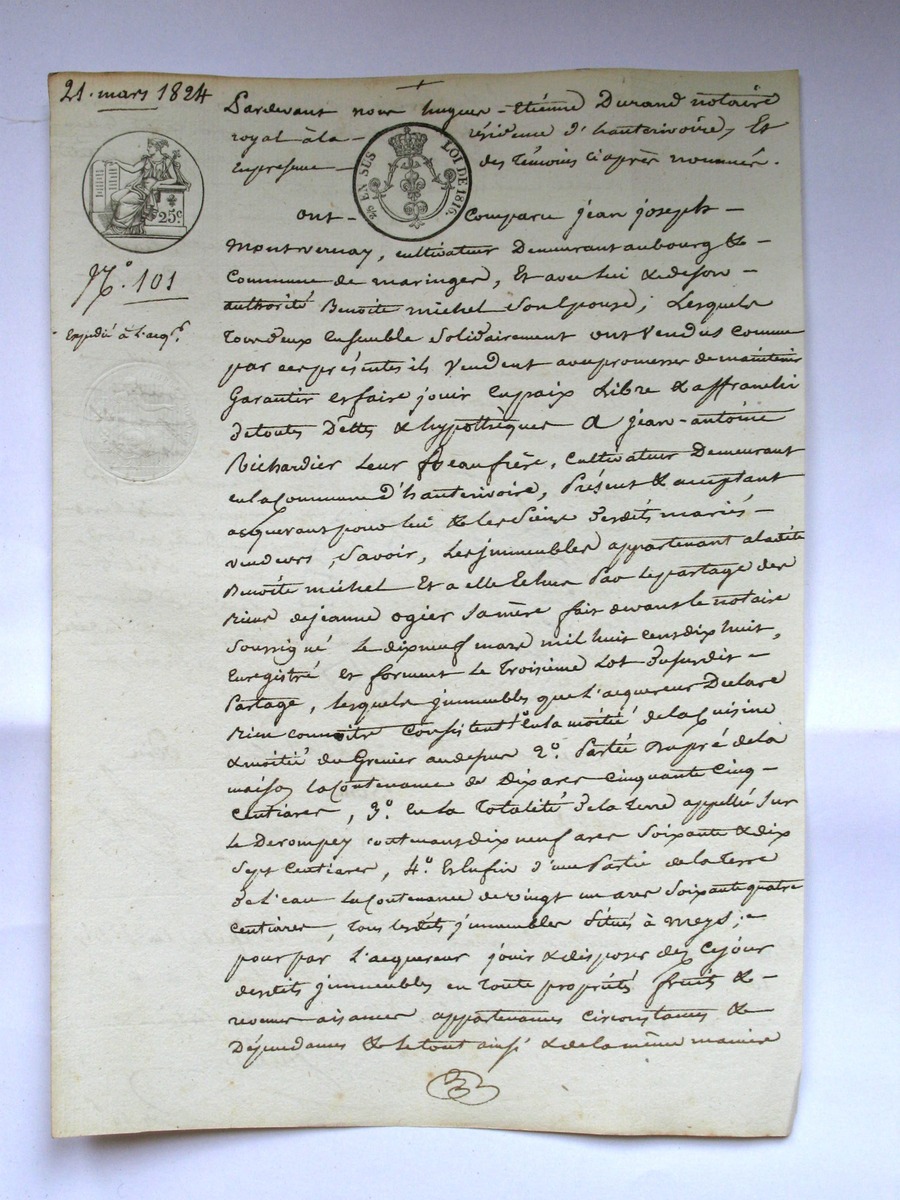 21. mars 1824
25c
N.º 101
Expédié à l'acqr.
EN SUS LOI DE 1816.
Pardevant nous hugues-Etienne Durand notaire
royal à la résidence d'hauterivoire, Et
en présence des témoins ci après nommés.
ont comparu jean joseph
Montvernay, cultivateur Demeurant au bourg &
Commune de maringes, Et avec lui & de son
authorité Benoite michel son Epouse; Lesquels
tous deux Ensemble solidairement ont Vendus comme
par ces présentes ils Vendent avec promesse de maintenir
Garantir et faire jouir en paix Libre & affranchi
de toutes Dettes & hypothèques A jean-antoine
Richardier leur Beaufrère, cultivateur Demeurant
en la Commune d'hauterivoire, Présent & acceptant
acquerant pour lui & les siens desdits mariés
vendeurs, savoir, Les jmmeubles appartenant à ladite
Benoite michel Et a elle Echus Par le partage des
biens de jeanne ogier sa mère fait devant le notaire
soussigné Le dix neuf mars mil huit cens dix huit,
Enregistré et forment le troisième Lot dususdit
Partage, lesquels jmmeubles que l'acquereur Declare
bien connoitre Consistent 1º En la moitié de la Cuisine
& moitié du Grenier audessus 2º. Partie du pré de la
maison la Contenance de Dix ares Cinquante Cinq
Centiares, 3º. En la totalité de la terre appellée sur
le Derompey contenant dix neuf ares soixante & dix
sept Centiares, 4º. Et Enfin d'une Partie de la terre
de l'eau la Contenance de vingt un ares soixante quatre
Centiares, tous lesdits jmmeubles situés à meys;
pour par l'acquereur jouir & disposer dès ce jour
desdits jmmeubles en toute propriété fruits &
revenus aisances appartenances circonstances &
Dépendances & le tout ainsi & de la même manière